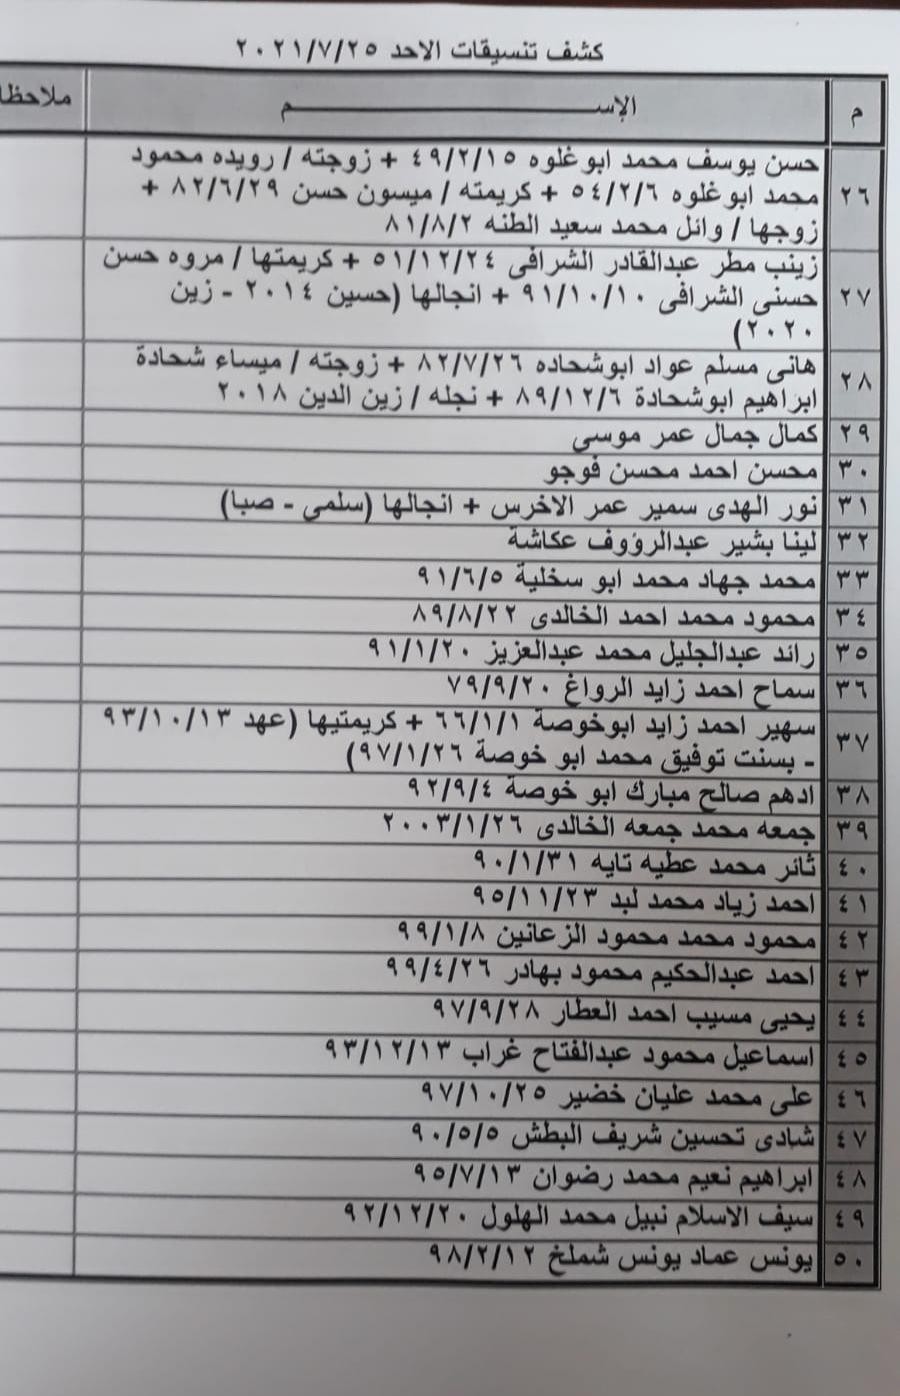 كشف تنسيقات الاحد ٢٠٢١/٧/٢٥
م الإســــــم ملاحظا
٢٦ حسن يوسف محمد ابوغلوه ٤٩/٢/١٥ + زوجته / رويده محمود
محمد ابوغلوه ٥٤/٢/٦ + كريمته / ميسون حسن ٨٢/٦/٢٩ +
زوجها / وائل محمد سعيد الطنه ٨١/٨/٢
٢٧ زينب مطر عبدالقادر الشرافى ٥١/١٢/٢٤ + كريمتها / مروه حسن
حسنى الشرافى ٩١/١٠/١٠ + انجالها (حسين ٢٠١٤ - زين
٢٠٢٠)
٢٨ هانى مسلم عواد ابوشحاده ٨٢/٧/٢٦ + زوجته / ميساء شحادة
ابراهيم ابوشحادة ٨٩/١٢/٦ + نجله / زين الدين ٢٠١٨
٢٩ كمال جمال عمر موسى
٣٠ محسن احمد محسن فوجو
٣١ نور الهدى سمير عمر الاخرس + انجالها (سلمى - صبا)
٣٢ لينا بشير عبدالرؤوف عكاشة
٣٣ محمد جهاد محمد ابو سخلية ٩١/٦/٥
٣٤ محمود محمد احمد الخالدى ٨٩/٨/٢٢
٣٥ رائد عبدالجليل محمد عبدالعزيز ٩١/١/٢٠
٣٦ سماح احمد زايد الرواغ ٧٩/٩/٢٠
٣٧ سهير احمد زايد ابوخوصة ٦٦/١/١ + كريمتيها (عهد ٩٣/١٠/١٣
- بسنت توفيق محمد ابو خوصة ٩٧/١/٢٦)
٣٨ ادهم صالح مبارك ابو خوصة ٩٢/٩/٤
٣٩ جمعه محمد جمعه الخالدى ٢٠٠٣/١/٢٦
٤٠ ثائر محمد عطيه تايه ٩٠/١/٣١
٤١ احمد زياد محمد لبد ٩٥/١١/٢٣
٤٢ محمود محمد محمود الزعانين ٩٩/١/٨
٤٣ احمد عبدالحكيم محمود بهادر ٩٩/٤/٢٦
٤٤ يحيى مسيب احمد العطار ٩٧/٩/٢٨
٤٥ اسماعيل محمود عبدالفتاح غراب ٩٣/١٢/١٣
٤٦ على محمد عليان خضير ٩٧/١٠/٢٥
٤٧ شادى تحسين شريف البطش ٩٠/٥/٥
٤٨ ابراهيم نعيم محمد رضوان ٩٥/٧/١٣
٤٩ سيف الاسلام نبيل محمد الهلول ٩٢/١٢/٢٠
٥٠ يونس عماد يونس شملخ ٩٨/٢/١٢